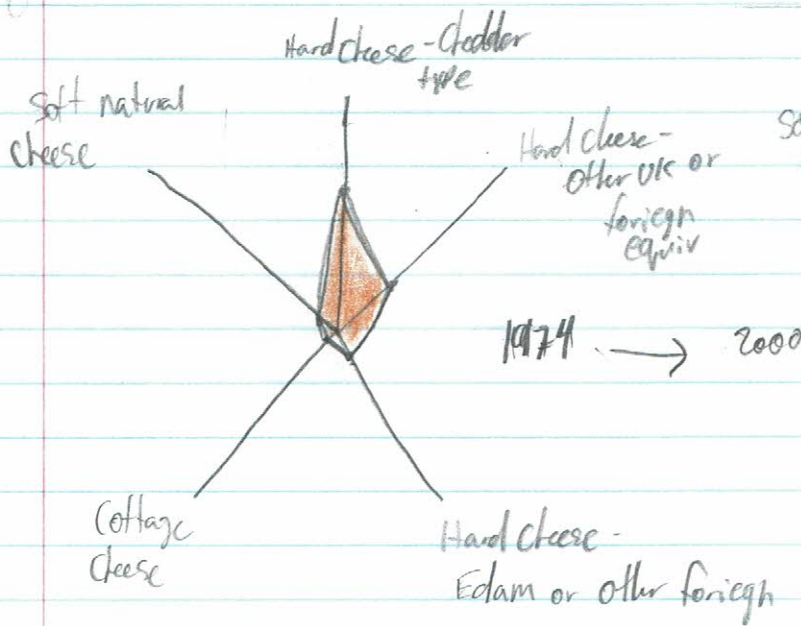 Hard cheese - Cheddar
type
Soft natural
cheese
Hard cheese -
other UK or
foriegn
equiv
So
1974 → 2000
Cottage
cheese
Hard cheese -
Edam or other foriegn